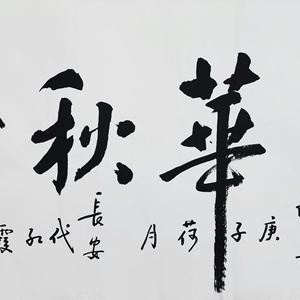 華秋
庚子荷月
長安
代
霞